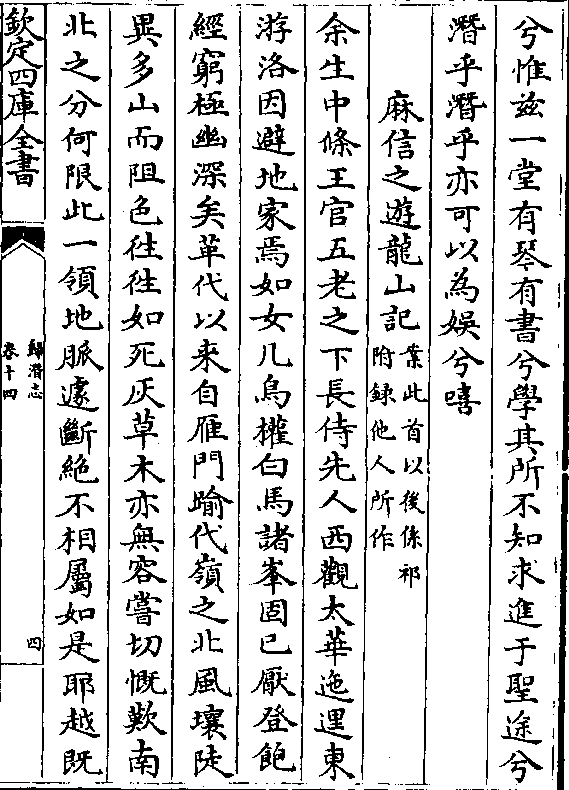 兮惟兹一堂有琴有書兮學其所不知求進于聖途兮
潛乎潛乎亦可以為娛兮嘻
麻信之遊龍山記案此首以後係祁附録他人所作
余生中條王官五老之下長侍先人西觀太華迤邐東
游洛因避地家焉如女几烏權白馬諸峯固已厭登飽
經窮極幽深矣革代以來自雁門踰代嶺之北風壤陡
異多山而阻色往往如死灰草木亦無容嘗切慨歎南
北之分何限此一領地脈遽斷絶不相屬如是耶越既
欽定四庫全書
歸潛志
卷十四
四